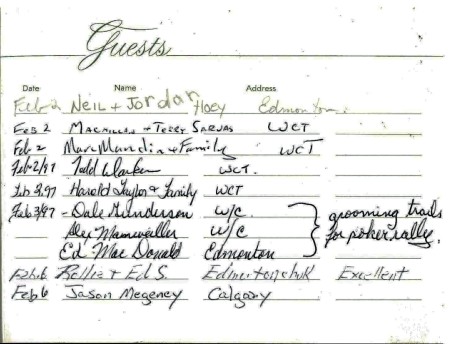 Guests
Date Name Address
Feb 2 Neil + Jordan Hoey Edmonton.
Feb 2 + Terry WCT
Feb 2 + Family WCT
Feb 2/97 Todd WCT.
Feb 3/97 Harold Taylor & Family WCT
Feb 3/97 - Dale Gunderson W/C. grooming trails
Alex W/C for poker rally.
Ed Mac Donald Edmonton
Feb 6 + Ed S. Excellent
Feb 6 Jason Megeney Calgary